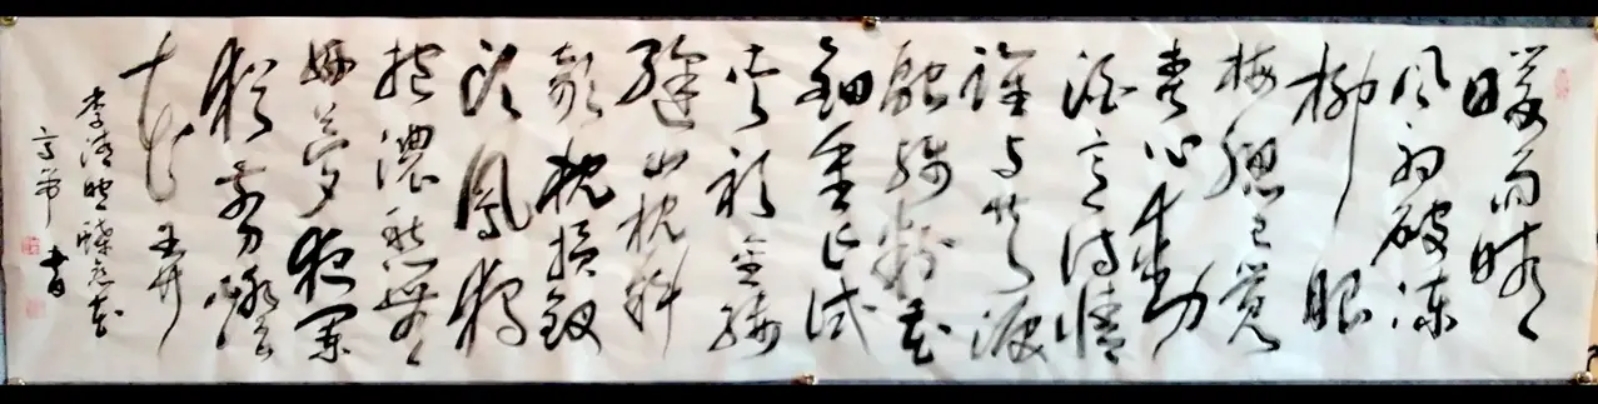 暖雨晴
风初破冻
柳眼
梅腮已觉
春心动
酒意诗情
谁与共泪
融残粉花
钿重乍试
夹衫金缕
缝山枕斜
欹枕损钗
头凤独
抱浓愁无
好梦夜阑
犹剪灯
花弄
李清照蝶恋花
书